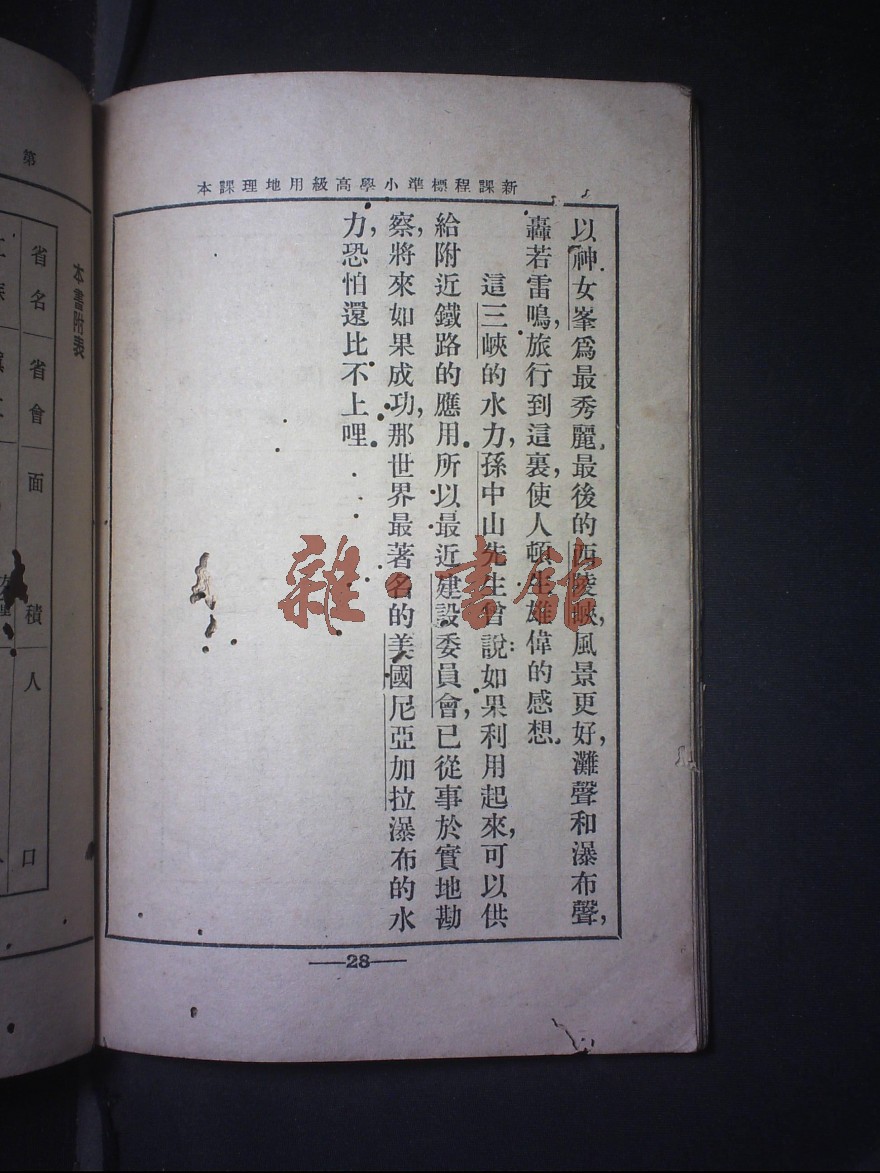 新課程標準小學高級用地理課本
以神女峯爲最秀麗。最後的西陵峽，風景更好，灘聲和瀑布聲，
轟若雷鳴，旅行到這裏，使人頓生雄偉的感想。
這三峽的水力，孫中山先生曾說：如果利用起來，可以供
給附近鐵路的應用。所以最近建設委員會，已從事於實地勘
察，將來如果成功，那世界最著名的美國尼亞加拉瀑布的水
力，恐怕還比不上哩。
—28—
第
本書附表
省名 省會 面積 人口
雜·書館